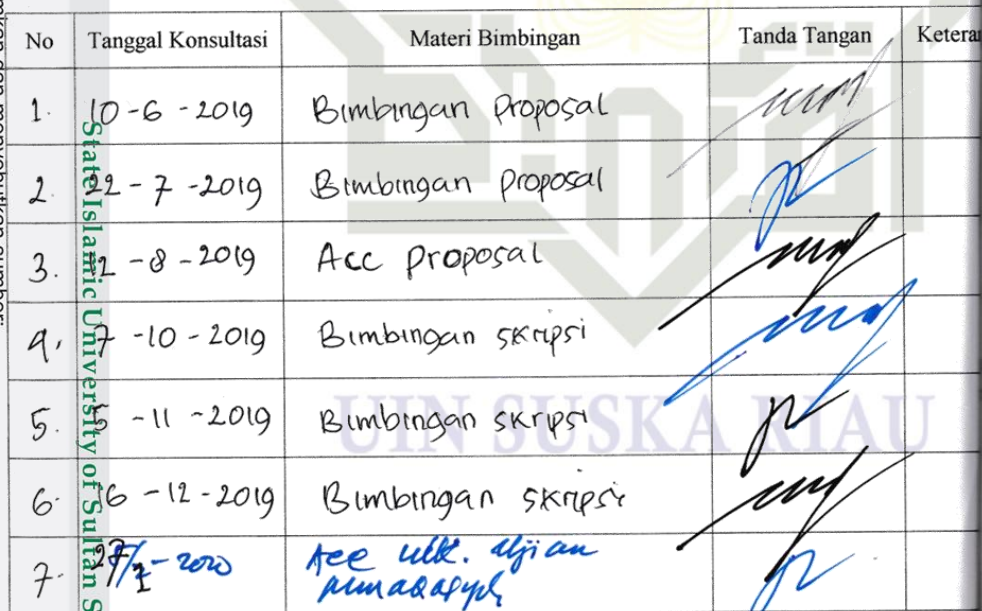 No Tanggal Konsultasi Materi Bimbingan Tanda Tangan Keteran
1. 10-6-2019 Bimbingan Proposal
2. 22-7-2019 Bimbingan Proposal
3. 12-8-2019 Acc Proposal
4. 7-10-2019 Bimbingan skripsi
5. 5-11-2019 Bimbingan skripsi
6. 16-12-2019 Bimbingan skripsi
7. 27/1-2020 Acc utk. Ujian
munaqasyah
State Islamic University of Sultan S
UIN SUSKA RIAU
mkan dan menyebutkan sumber: